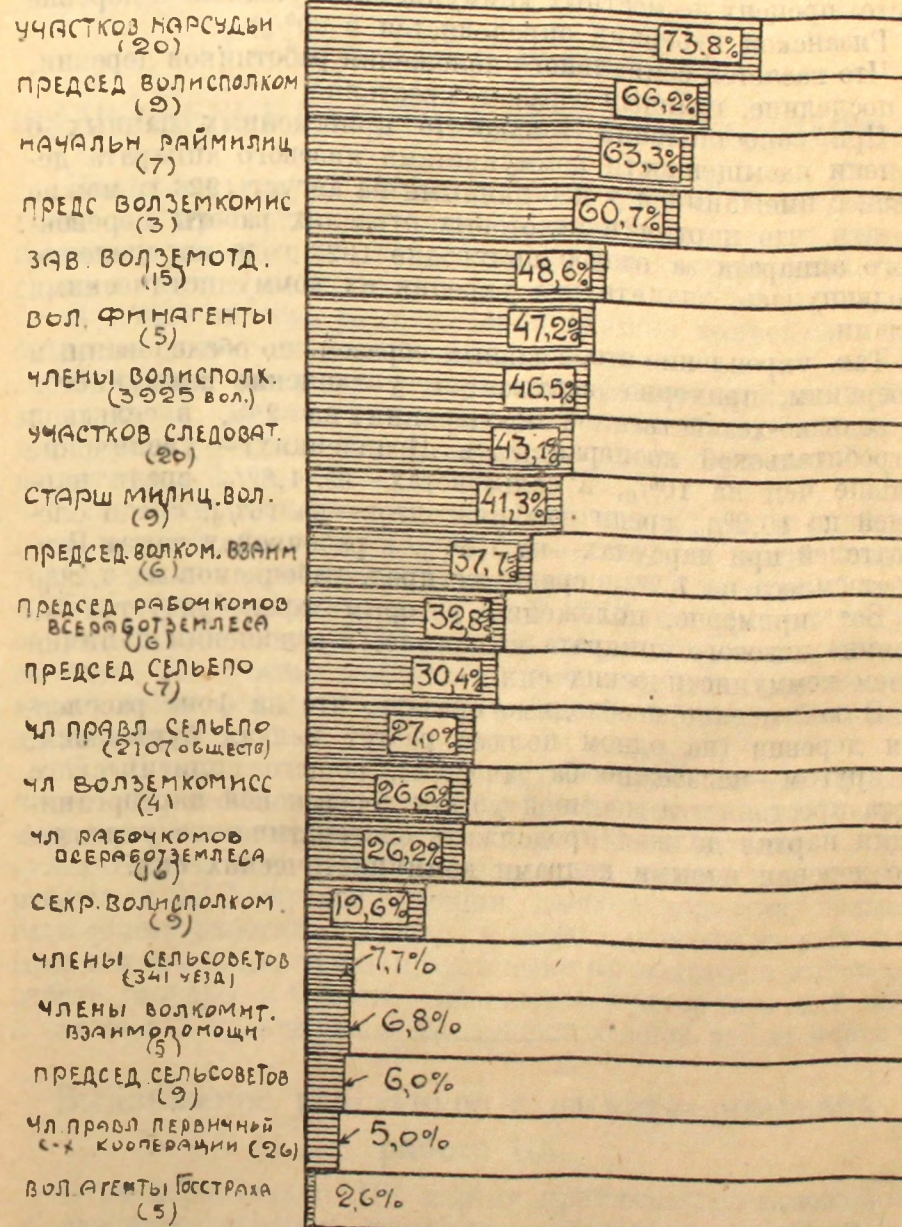 УЧАСТКОВ НАРСУДЬИ
(20)
73.8%
ПРЕДСЕД ВОЛИСПОЛКОМ
(9)
66,2%
НАЧАЛЬН РАЙМИЛИЦ
(7)
63,3%
ПРЕДС ВОЛЗЕМКОМИС
(3)
60,7%
ЗАВ. ВОЛЗЕМОТД.
(15)
48,6%
ВОЛ. ФИНАГЕНТЫ
(5)
47,2%
ЧЛЕНЫ ВОЛИСПОЛК.
(3925 ВОЛ.)
46,5%
УЧАСТКОВ СЛЕДОВАТ.
(20)
43,1%
СТАРШ МИЛИЦ. ВОЛ.
(9)
41,3%
ПРЕДСЕД. ВОЛКОМ. ВЗАИМ
(6)
37,7%
ПРЕДСЕД РАБОЧКОМОВ
ВСЕРАБОТЗЕМЛЕСА
(16)
32,8%
ПРЕДСЕД СЕЛЬЕПО
(7)
30,4%
ЧЛ ПРАВЛ СЕЛЬЕПО
(2107 ОБЩЕСТВ)
27,0%
ЧЛ ВОЛЗЕМКОМИСС
(4)
26,6%
ЧЛ РАБОЧКОМОВ
ВСЕРАБОТЗЕМЛЕСА
(16)
26,2%
СЕКР. ВОЛИСПОЛКОМ.
(9)
19,6%
ЧЛЕНЫ СЕЛЬСОВЕТОВ
(341 УЕЗД)
7,7%
ЧЛЕНЫ ВОЛКОМИТ.
ВЗАИМОПОМОЩИ
(5)
6,8%
ПРЕДСЕД. СЕЛЬСОВЕТОВ
(9)
6,0%
ЧЛ. ПРАВЛ ПЕРВИЧНЫЙ
С-Х КООПЕРАЦИИ (26)
5,0%
ВОЛ. АГЕНТЫ ГОССТРАХА
(5)
2,6%